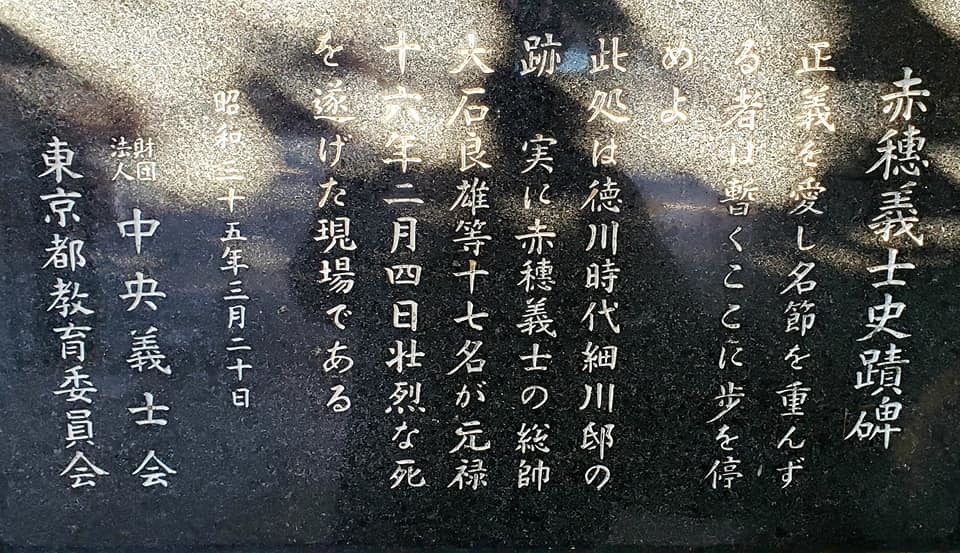 赤穂義士史蹟碑
正義を愛し名節を重んず
る者は暫くここに歩を停
めよ
此処は徳川時代細川邸の
跡　実に赤穂義士の総帥
大石良雄等十七名が元禄
十六年二月四日壮烈な死
を遂げた現場である
昭和二十五年三月二十日
財団法人　中央義士会
東京都教育委員会